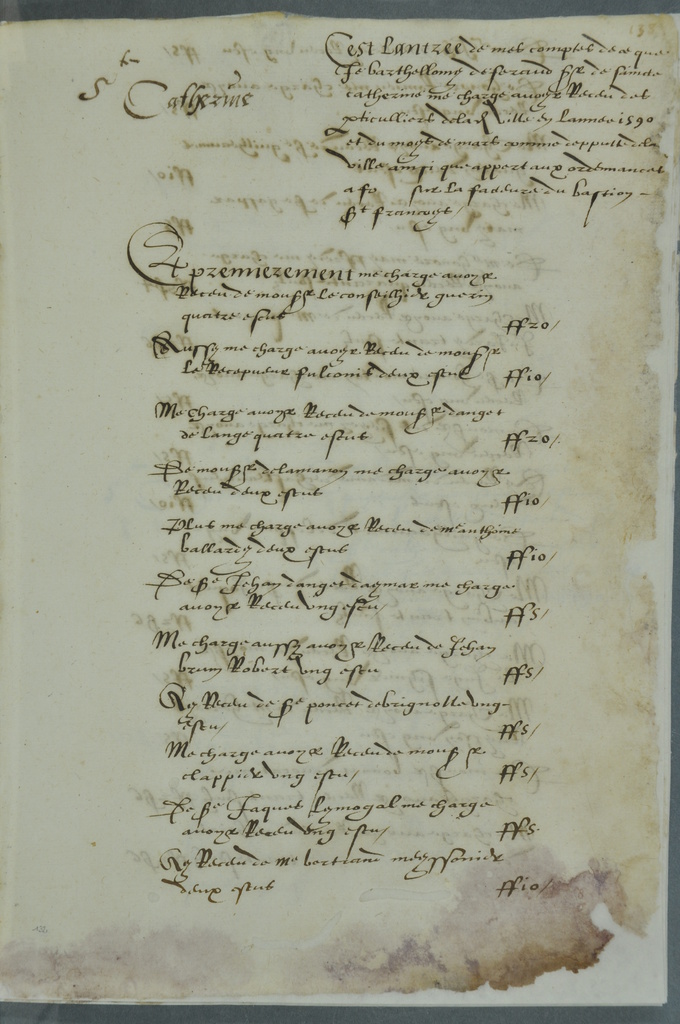 Ste
Catherine
C'est Lantree de mes comptes de ce que
Je barthellomy de feraud sr de sainte
catherine me charge avoyr Receu des
particulliers de lad ville en Lannee 1590
et du moys de mars comme depputte de la
ville ainsi que appert aux ordemances
a fo sur la facture du bastion
St francoys /
Et premierement me charge avoyr
Receu de monsr Le conseilhier guerin
quatre escus ff20/
Aussy me charge avoyr Receu de monsr
Le Recepueur fulconis deux escus ff10/
Me charge avoyr Receu de monsr danget
de Lange quatre escus ff20/
De monsr de lamanon me charge avoyr
Receu deux escus ff10/
Plus me charge avoyr Receu de me anthoine
ballardy deux escus ff10/
De sr Jehan danget daymar me charge
avoyr Receu ung escu / ff5/
Me charge aussy avoyr Receu de Jehan
brun Robert ung escu ff5/
Ay Receu de sr poncet debrignolle ung
escu / ff5/
Me charge avoyr Receu de monsr
clappier ung escu / ff5/
De sr Jaques Lymogal me charge
avoyr Receu ung escu / ff5
Ay Receu de me bertrand meyssonier
deux escus ff10/